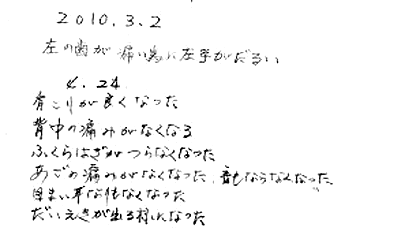 2010.3.2
左の歯が痛い為に左手がだるい
4.24
肩こりが良くなった
背中の痛みがなくなる
ふくらはぎがつらなくなった
あごの痛みがなくなった、音もならなくなった
目まい耳なりもなくなった
だいえきが出る様になった